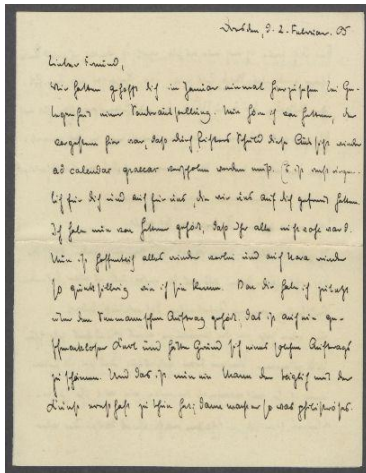 Dresden, d. 2. Februar. 05
Lieber Freund,
Wir hatten gehofft dich im Januar einmal hierzusehen bei Ge-
legenheit einer Sonderausstellung. Nun hör ich von Hettner, der
vorgestern hier war, daß durch Schuld diese Aussicht wieder
ad calendas graecas verschoben werden muß. Es ist recht
für dich und auch für uns, die wir uns auf dich gefreut hatten.
Ich habe nun von Hettner gehört, daß Ihr alle nicht wohl ward.
Nun ist hoffentlich alles wieder vorbei und auch wieder
so wie ich sie kenne. Von dir hab ich zuletzt
über den Auftrag gehört, das ist auch ein ge-
schmackloser Kerl und hätte Grund sich eines solchen Auftrags
zu schämen. Und das ist nun ein Mann der täglich mit der
Kunst ernsthaft zu thun hat; dann macht er so was